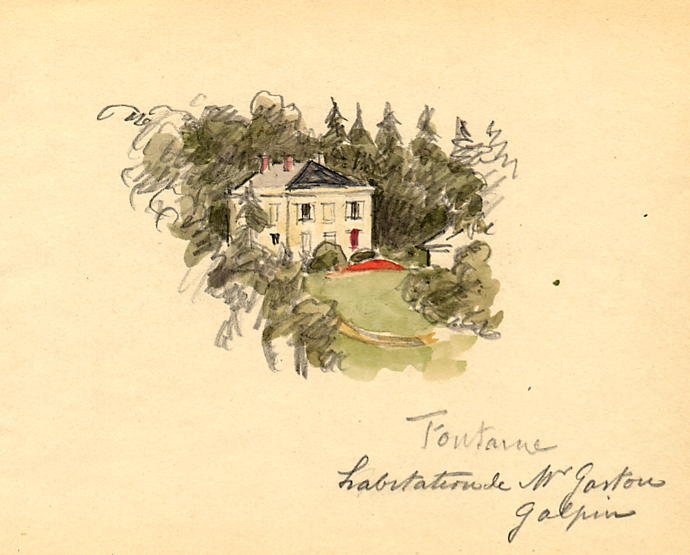 Fontaine
habitation de Mr Gaston
Galpin